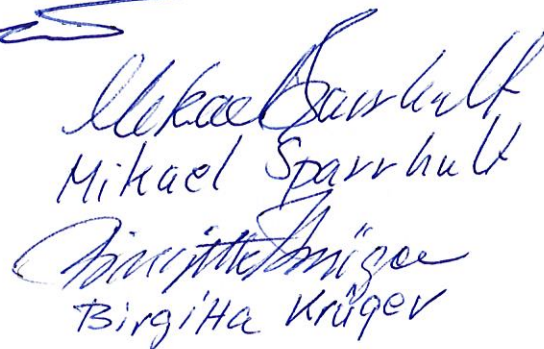 Mikael Sparrhult
Mikael Sparrhult
Birgitta Krüger
Birgitta Krüger